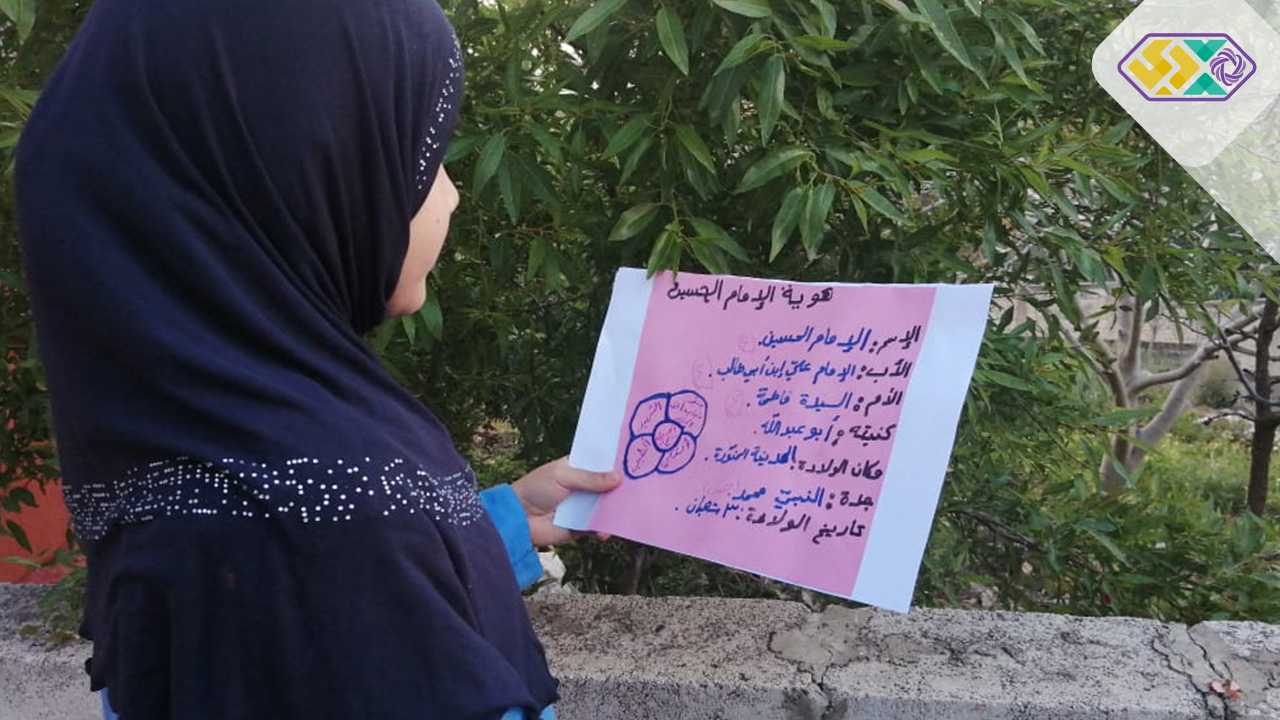 هوية الإمام الحسين
الإسم: الإمام الحسين.
الأب: الإمام عليّ إبن أبي طالب.
الأم: السيدة فاطمة.
كنيته: أبو عبد اللّه.
مكان الولادة: المدينة المنوّرة.
جدة: النبيّ محمد
تاريخ الولادة: ٣ شعبان.